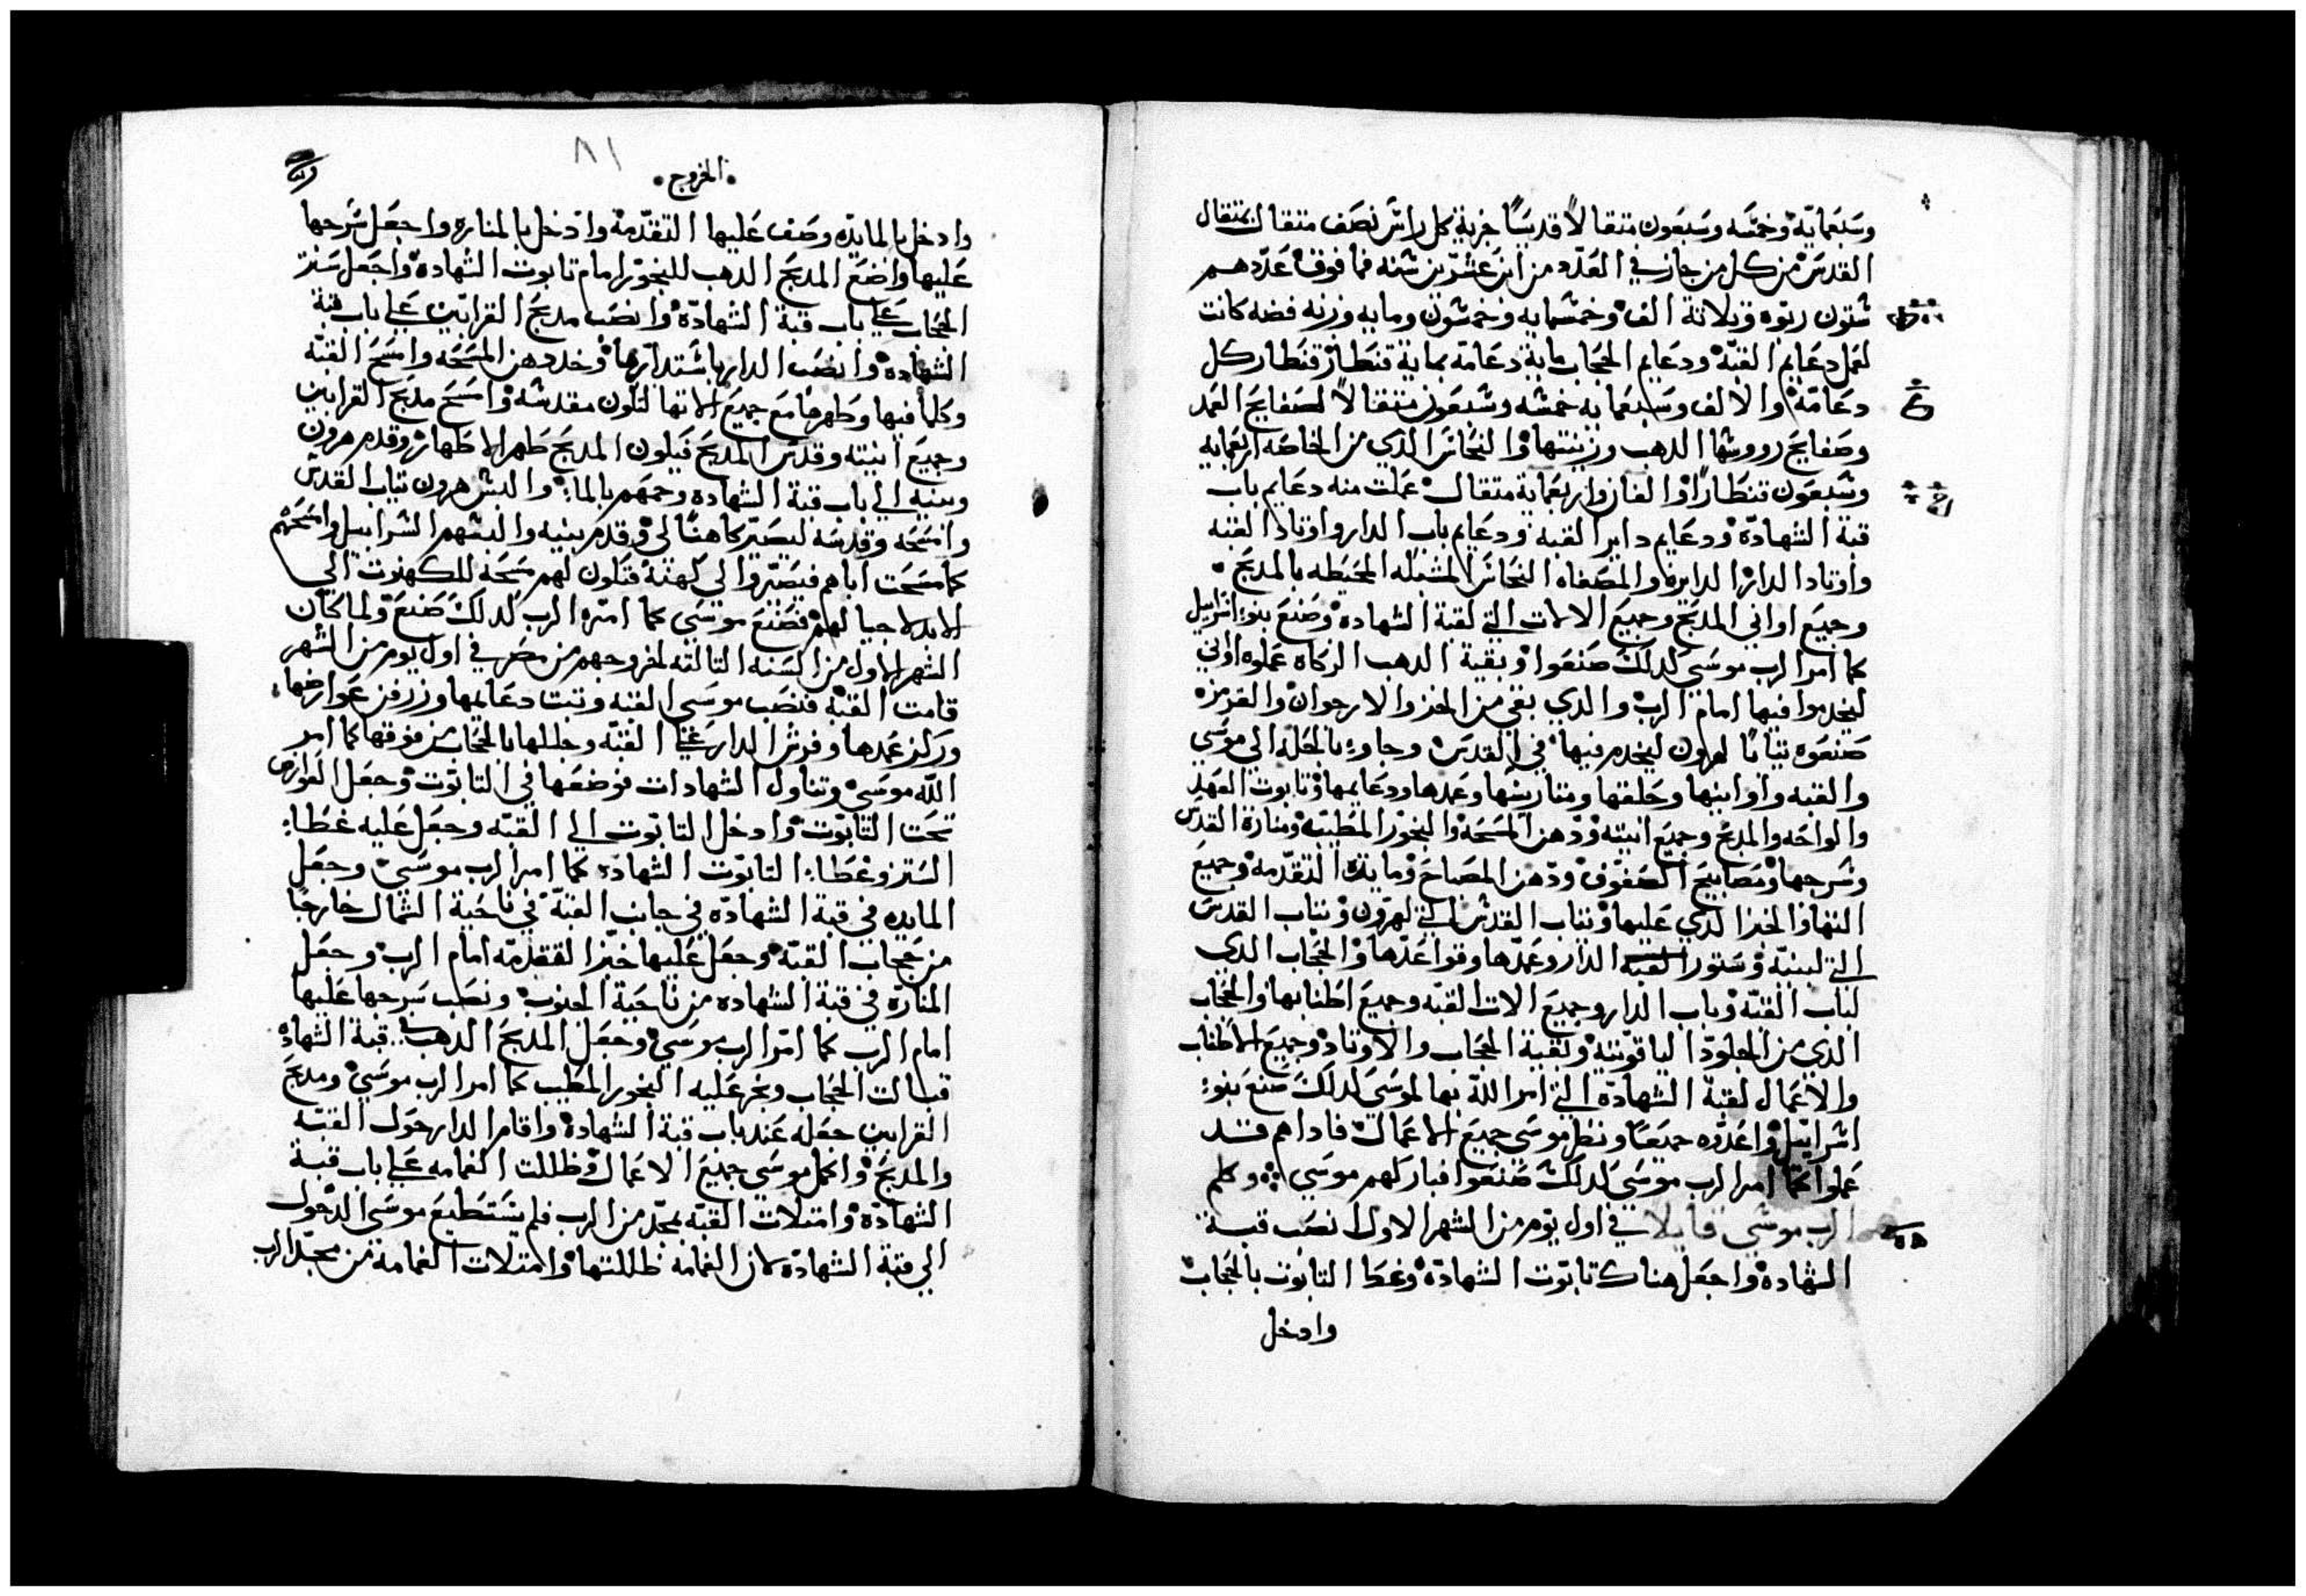 وسبعمايه وخمسه وسبعون متقالاً قدسياً جزية كل راس نصف متقال بمتقال
القدس من كل من جاز في العدد من ابن عشرين سنه فما فوق عددهم
ستون ربوه وتلاتة الف وخمسمايه وخمسون ومايه وزنه فضه كانت
لعمل دعايم القبه ودعايم الحجاب ماية دعامه بماية قنطار قنطار كل
دعامه والالف وسبعمايه خمسه وسبعون متقالاً لصفايح العمد
وصفايح رووسها الدهب وزينتها والنحاس الذي من الخاصه اربعمايه
وسبعون قنطاراً والفان واربعماية متقال عملت منه دعايم باب
قبة الشهاده ودعايم داير القبه ودعايم باب الدار واوتاد القبه
واوتاد الدار الدايره والمصفاه النحاس المشبكه المحيطه بالمدبح
وجميع اواني المدبح وجميع الالات التي لقبة الشهاده وصنع بنوا اسراييل
كما امر الرب موسي لدلك صنعوا وبقية الدهب الزكاه عملوه اواني
ليخدموا فيها امام الرب والدي بقي من الخز والارجوان والقرمزه
صنعوه تياباً لهرون ليخدم فيها في القدس وجاوا بالحله الي موسي
والقبه واوانيها وحلقها ومتاريسها وعمدها ودعايمها وتابوت العهد
والواحه والمدبح وجميع انيته ودهن المسحه والبخور المطيب ومنارة القدس
وسرجها ومصابيح الصفوف ودهن المصباح ومايدة التقدمه وجميع
انيتها والخبز الدي عليها وتياب القدس التي لهرون وتياب القدس
التي لبنيه وستور القبه الدار وعمدها وقواعدها والحجاب الدي
لباب القبه وباب الدار وجميع الات القبه وجميع اطنابها والحجاب
الدي من الجلود الياقوتيه وبقية الحجاب والاوتاد وجميع الاطناب
والاعمال لقبة الشهاده التي امر الله بها لموسي لدلك صنع بنوا
اسراييل واعدوه جميعاً ونظر موسي جميع الاعمال فاداهم قد
عملوا كما امر الرب موسي لدلك صنعوا فباركهم موسي وكلم
الرب موسي قايلا في اول يوم من الشهر الاول انصب قبة
الشهاده واجعل هناك تابوت الشهاده وغطا التابوت بالحجاب
وادخل
الخروج
٨١
وادخل بالمايده وصف عليها التقدمه وادخل بالمناره واجعل سرجها
عليها واضع المدبح الدهب للبخور امام تابوت الشهاده واجعل ستر
الحجاب علي باب قبة الشهاده وانصب مدبح القرابين علي باب قبة
الشهاده وانصب الدار باستدارتها وخد دهن المسحه وامسح القبه
وكلما فيها وطهرها مع جميع الاتها لتكون مقدسه وامسح مدبح القرابين
وجميع انيته وقدس المدبح فيكون المدبح طهر الاطهار وقدم هرون
وبنيه الي باب قبة الشهاده وحمهم بالما والبس هرون تياب القدس
وامسحه وقدسه ليصير كاهناً لي وقدم بنيه والبسهم السرابيل وامسحهم
كما مسحت اباهم فيصيروا لي كهنة فتكون لهم مسحه للكهنوت الي
الابد لاجيالهم فصنع موسي كما امره الرب لدلك صنع ولما كان
الشهر الاول من السنه التالته لخروجهم من مصر في اول يوم من الشهر
قامت القبه فنصب موسي القبه وتبت دعايمها وزرفن عوارضها
وركز عمدها وفرش الدار علي القبه وجللها بالحجاب من فوقها كما امر
الله موسي وتناول الشهادات فوضعها في التابوت وجعل العوارض
تحت التابوت وادخل التابوت الي القبه وجعل عليه غطا
الستر وغطا التابوت الشهاده كما امر الرب موسي وجعل
المايده في قبة الشهاده في جانب القبه في ناحية الشمال خارجاً
من حجاب القبه وجعل عليها خبز التقدمه امام الرب وجعل
المناره في قبة الشهاده من ناحية الجنوب ونصب سرجها عليها
امام الرب كما امر الرب موسي وجعل المدبح الدهب قبة الشهاده
قبالت الحجاب وبخر عليه البخور المطيب كما امر الرب موسي ومدبح
القرابين جعله عند باب قبة الشهاده واقام الدار حول القبه
والمدبح واكمل موسي جميع الاعمال وظللت الغمامه علي باب قبة
الشهاده وامتلات القبه بمجد من الرب فلم يستطيع موسي الدخول
الي قبة الشهاده لان الغمامه ظللتها وامتلات الغمامة من مجد الرب